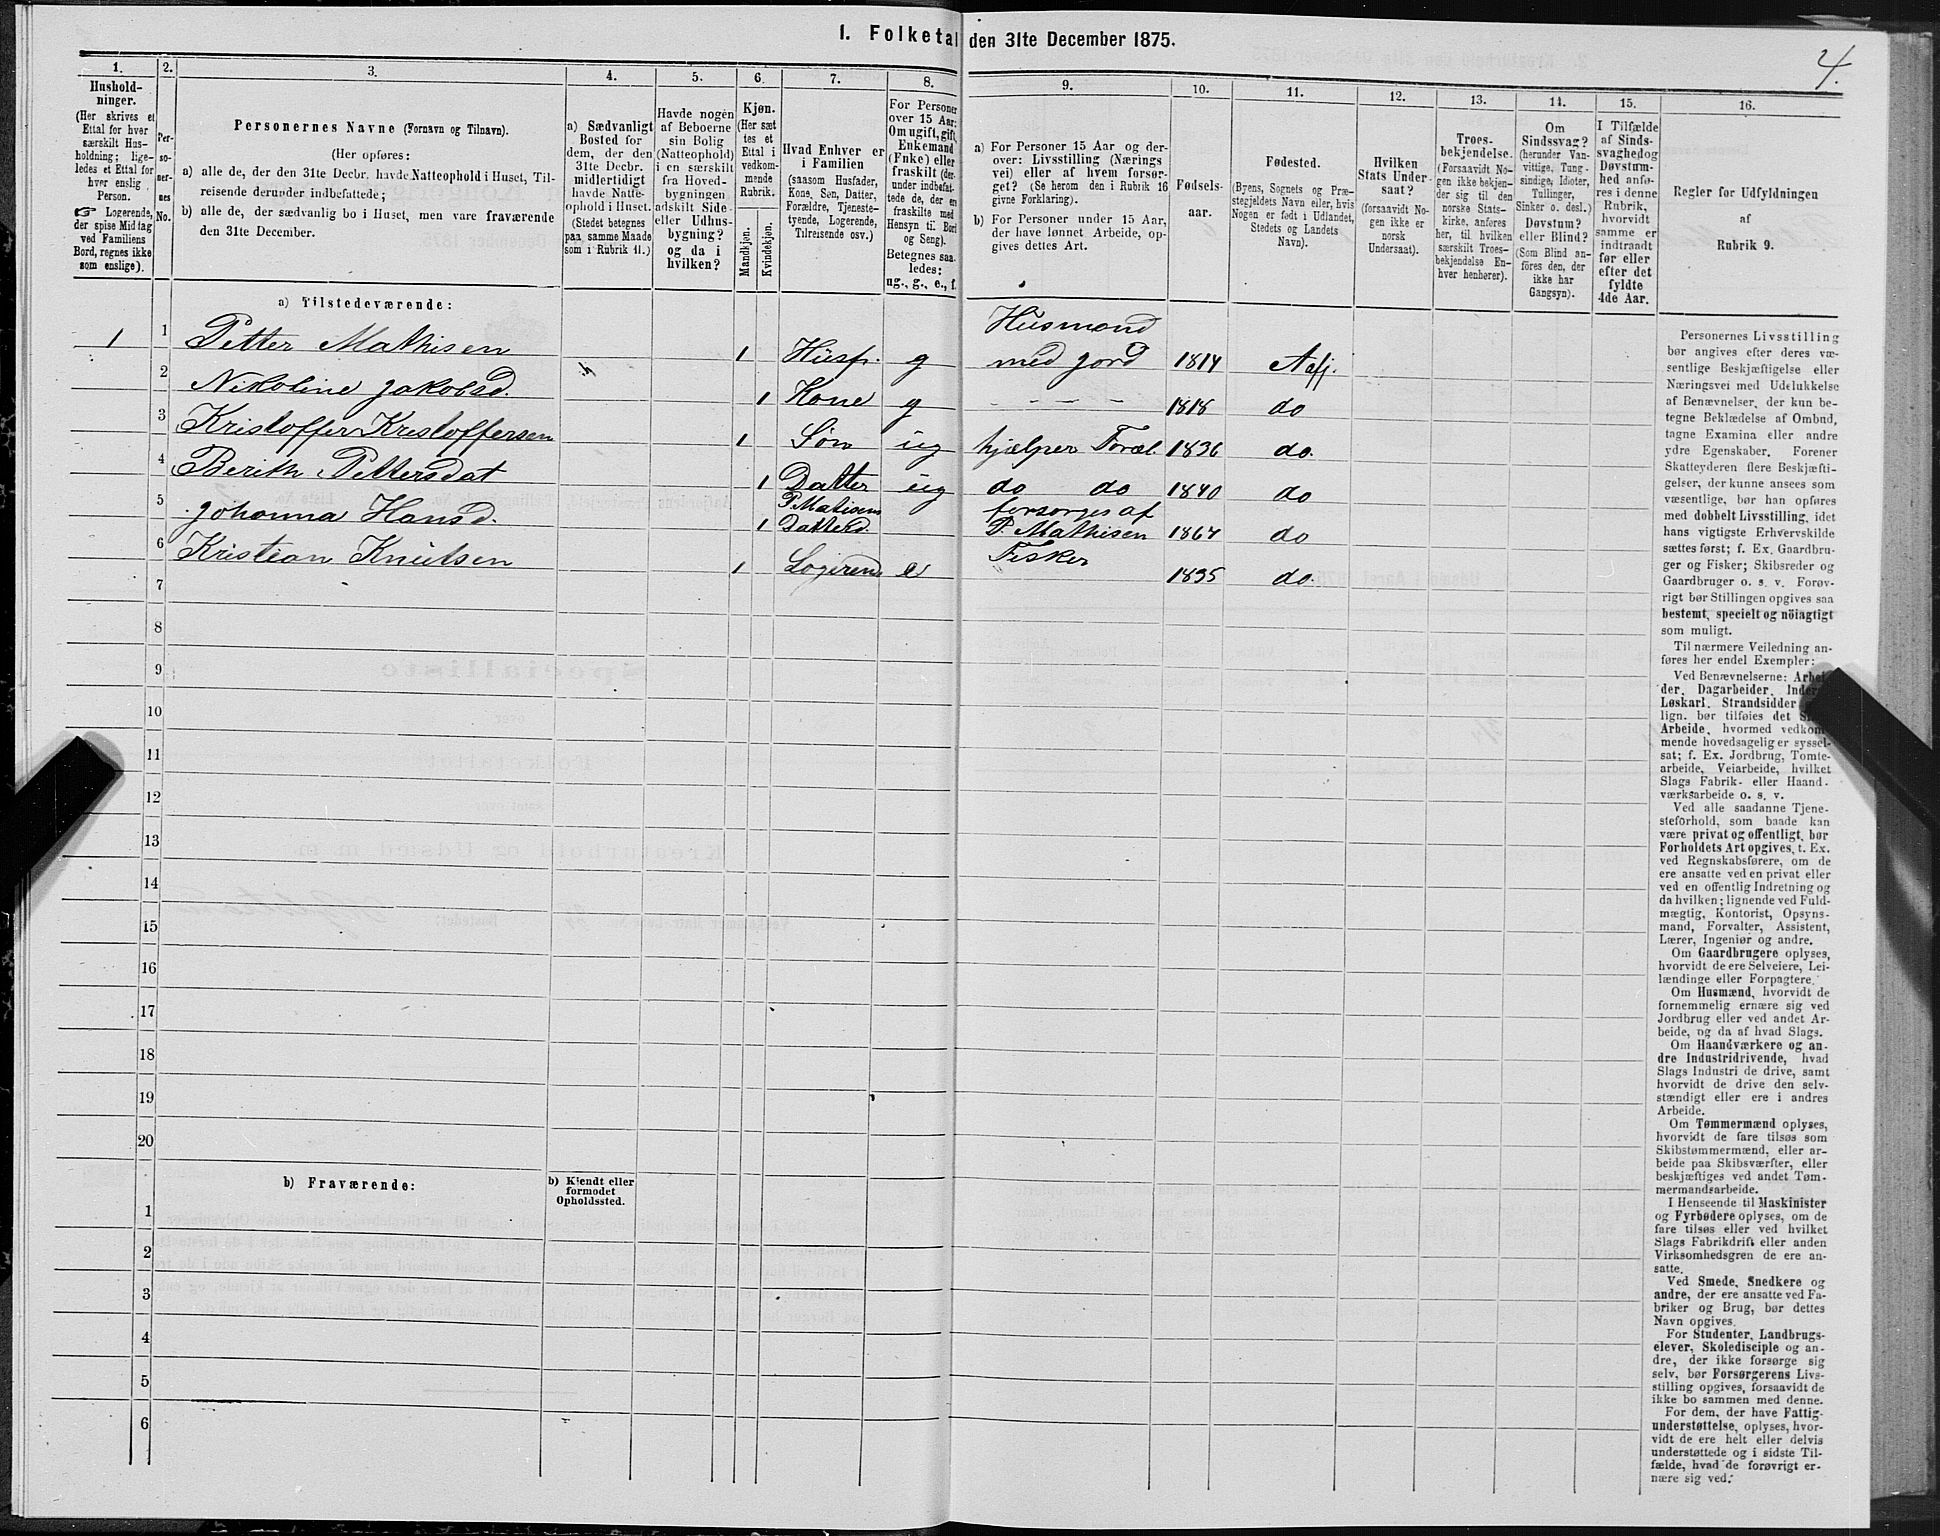 I. Folketal den 31te December 1875.
4.
1.
Hushold-
ninger.
(Her skrives et
Ettal for hver
særskilt Hus-
holdning; lige-
ledes et Ettal for
hver enslig
Person.
☞ Logerende,
der spise Middag
ved Familiens
Bord, regnes ikke
som enslige).
2.
Per-
so-
ner-
nes
No.
3.
Personernes Navne (Fornavn og Tilnavn).
(Her opføres:
a) alle de, der den 31te Decbr. havde Natteophold i Huset, Til-
reisende derunder indbefattede;
b) alle de, der sædvanlig bo i Huset, men vare fraværende
den 31te December.
4.
a) Sædvanligt
Bosted for
dem, der den
31te Decbr.
midlertidigt
havde Natte-
ophold i Huset.
(Stedet betegnes
paa samme Maade
som i Rubrik 11.)
5.
Havde nogen
af Beboerne
sin Bolig
(Natteophold)
i en særskilt
fra Hoved-
bygningen
adskilt Side-
eller Udhus-
bygning?
og da i
hvilken?
6.
Kjøn.
(Her sæt
tes et
Ettal i
vedkom-
mende
Rubrik.
Mandkjøn.
Kvindekjøn.
7.
Hvad Enhver er
i Familien
(saasom Husfader,
Kone, Søn, Datter,
Forældre, Tjeneste-
tyende, Logerende,
Tilreisende osv.)
8.
For Personer
over 15 Aar:
Om ugift, gift,
Enkemand
(Enke) eller
fraskilt (der-
under indbefat-
tede de, der er
fraskilte med
Hensyn til Bord
og Seng).
Betegnes saa-
ledes:
ug., g., e., f.
9.
a) For Personer 15 Aar og der-
over: Livsstilling (Nærings
vei) eller af hvem forsør-
get? (Se herom den i Rubrik 16
givne Forklaring).
b) For Personer under 15 Aar,
der have lønnet Arbeide, op-
gives dettes Art.
10.
Fødsels-
aar.
11.
Fødested.
(Byens, Sognets og Præ-
stegjeldets Navn eller, hvis
Nogen er født i Udlandet,
Stedets og Landets
Navn).
12.
Hvilken
Stats Under-
saat?
(forsaavidt No-
gen ikke er
norsk
Undersaat).
13.
Troes-
bekjendelse.
(Forsaavidt No-
gen ikke bekjen-
der sig til den
norske Stats-
kirke, anføres
her, til hvilken
særskilt Troes-
bekjendelse En-
hver henhører).
14.
Om
Sindssvag?
(herunder Van-
vittige, Tung-
sindige, Idioter,
Tullinger,
Sinker o. desl.)
Døvstum?
eller Blind?
(Som Blind an-
føres den, der
ikke har
Gangsyn).
15.
I Tilfælde
af Sinds-
svaghed og
Døvstum-
hed anfø-
res i denne
Rubrik,
hvorvidt
samme er
indtraadt
før eller
efter det
fyldte
4de Aar.
16.
Regler for Udfyldningen
af
Rubrik 9.
a) Tilstedeværende:
1 1 Petter Mathisen 1 Husf. g Husmand med jord 1814 Aafj.
2 Nikoline Jakobsd. 1 Kone g - - - - 1818 do
3 Kristoffer Kristoffersen 1 Søn ug hjælper Foræl. 1836 do.
4 Berith Pettersdat 1 Datter ug do do 1840 do
5 Johanna Hansd. 1 P. Matisens Datterd. forsørges af P. Mathisen 1864 do
6 Kristian Knutsen 1 Logerend e Fisker 1835 do.
7
8
9
10
11
12
13
14
15
16
17
18
19
20
b) Fraværende:
b) Kjendt eller
formodet
Opholdssted.
1
2
3
4
5
6
Personernes Livsstilling
bør angives efter deres væ-
sentlige Beskjæftigelse eller
Næringsvei med Udelukkelse
af Benævnelser, der kun be-
tegne Beklædelse af Ombud,
tagne Examina eller andre
ydre Egenskaber. Forener
Skatteyderen flere Beskjæfti-
gelser, der kunne ansees som
væsentlige, bør han opføres
med dobbelt Livsstilling, idet
hans vigtigste Erhvervskilde
sættes først; f. Ex. Gaardbru-
ger og Fisker; Skibsreder og
Gaardbruger o. s. v. Forøv-
rigt bør Stillingen opgives saa
bestemt, specielt og nöiagtigt
som muligt.
Til nærmere Veiledning an-
føres her endel Exempler:
Ved Benævnelserne: Arbei-
der, Dagarbeider, Inderst
Løskarl, Strandsidder
lign. bør tilføies det Slags
Arbeide, hvormed vedkom-
mende hovedsagelig er syssel-
sat; f. Ex. Jordbrug, Tomte-
arbeide, Veiarbeide, hvilket
Slags Fabrik- eller Haand-
værksarbeide o. s. v.
Ved alle saadanne Tjene-
steforhold, som baade kan
være privat og offentligt, bør
Forholdets Art opgives, t. Ex.
ved Regnskabsførere, om de
ere ansatte ved en privat eller
ved en offentlig Indretning og
da hvilken; lignende ved Fuld-
mægtig, Kontorist, Opsyns-
mand, Forvalter, Assistent,
Lærer, Ingeniør og andre.
Om Gaardbrugere oplyses,
hvorvidt de ere Selveiere, Lei-
lændinge eller Forpagtere.
Om Husmænd, hvorvidt de
fornemmelig ernære sig ved
Jordbrug eller ved andet Ar-
beide, og da af hvad Slags.
Om Haandværkere og an-
dre Industridrivende, hvad
Slags Industri de drive, samt
hvorvidt de drive den selv-
stændigt eller ere i andres
Arbeide.
Om Tømmermænd oplyses,
hvorvidt de fare tilsøs som
Skibstømmermænd, eller ar-
beide paa Skibsværfter, eller
beskjæftiges ved andet Tøm-
mermandsarbeide.
I Henseende til Maskinister
og Fyrbødere oplyses, om de
fare tilsøs eller ved hvilket
Slags Fabrikdrift eller anden
Virksomhedsgren de ere an-
satte.
Ved Smede, Snedkere og
andre, der ere ansatte ved Fa-
briker og Brug, bør dettes
Navn opgives.
For Studenter, Landbrugs-
elever, Skoledisciple og an-
dre, der ikke forsørge sig
selv, bør Forsørgerens Livs-
stilling opgives, forsaavidt de
ikke bo sammen med denne.
For dem, der have Fattig-
understøttelse, oplyses, hvor-
vidt de ere helt eller delvis
understøttede og i sidste Til-
fælde, hvad de forøvrigt er-
nære sig ved.